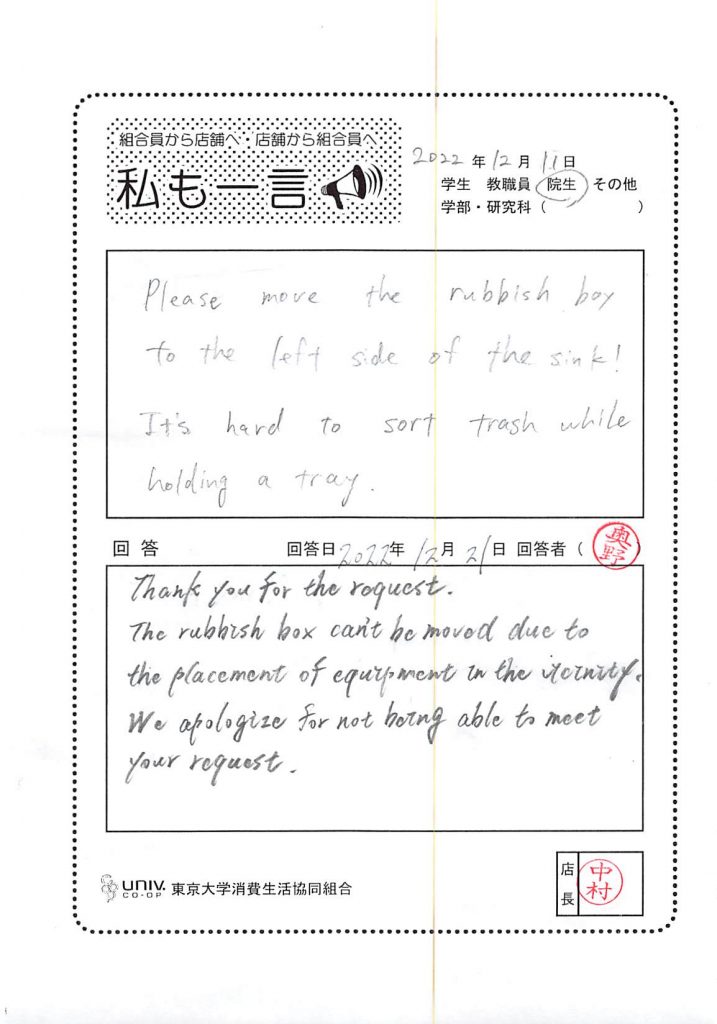 組合員から店舗へ・店舗から組合員へ
私も一言
2022年12月11日
学生 教職員 院生 その他
学部・研究科（ ）
Please move the rubbish boy
to the left side of the sink!
It's hard to sort trash while
holding a tray.
回答 回答日2022年12月21日 回答者（奥野）
Thank you for the request.
The rubbish box can't be moved due to
the placement of equipment in the vicinity.
We apologize for not being able to meet
your request.
店長 中村
UNIV. CO-OP 東京大学消費生活協同組合